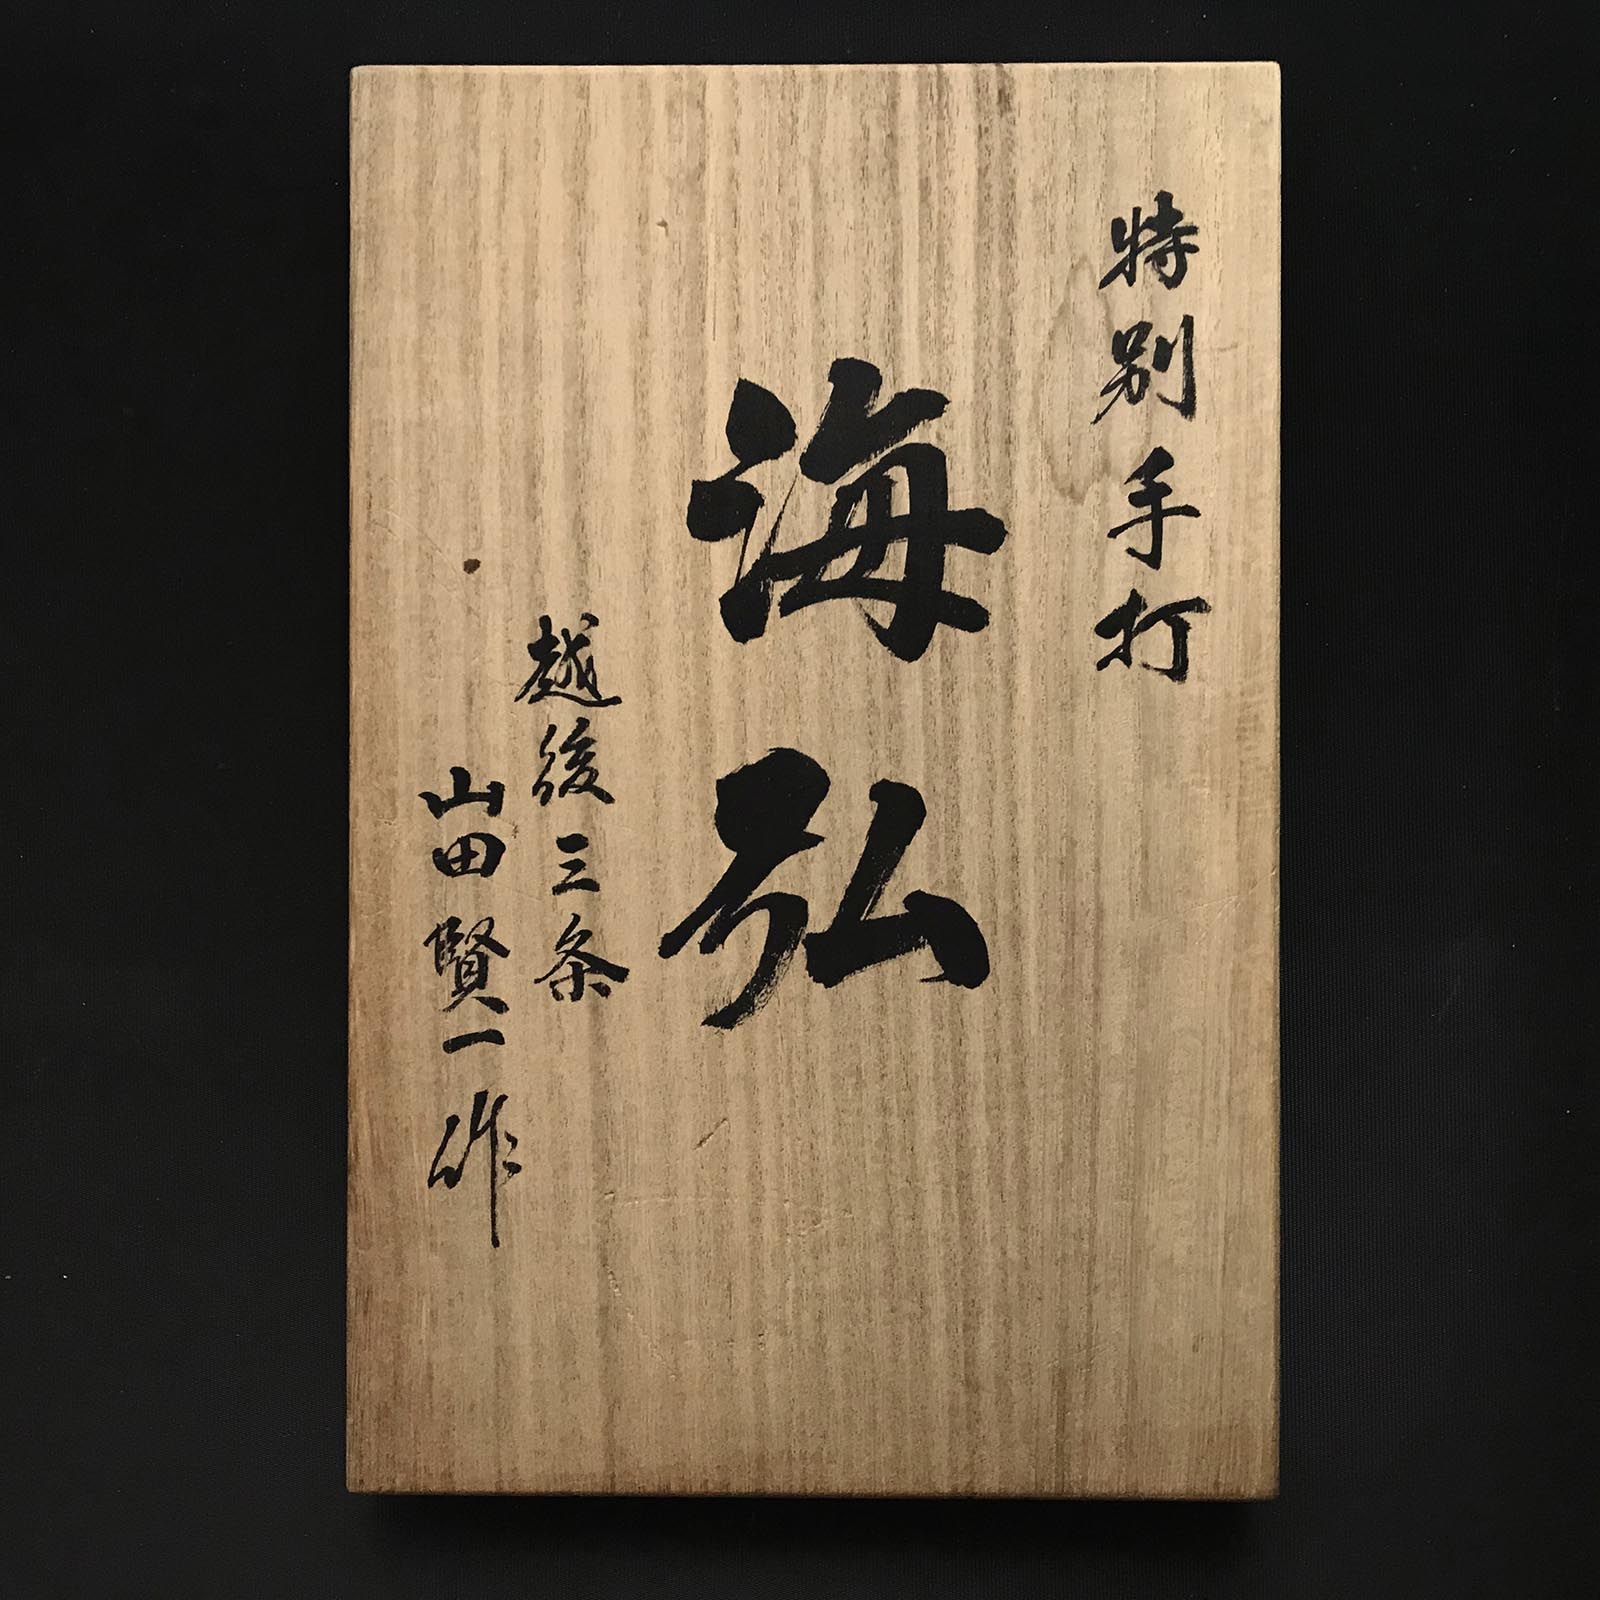 特別手打
海弘
越後三条
山田賢一作